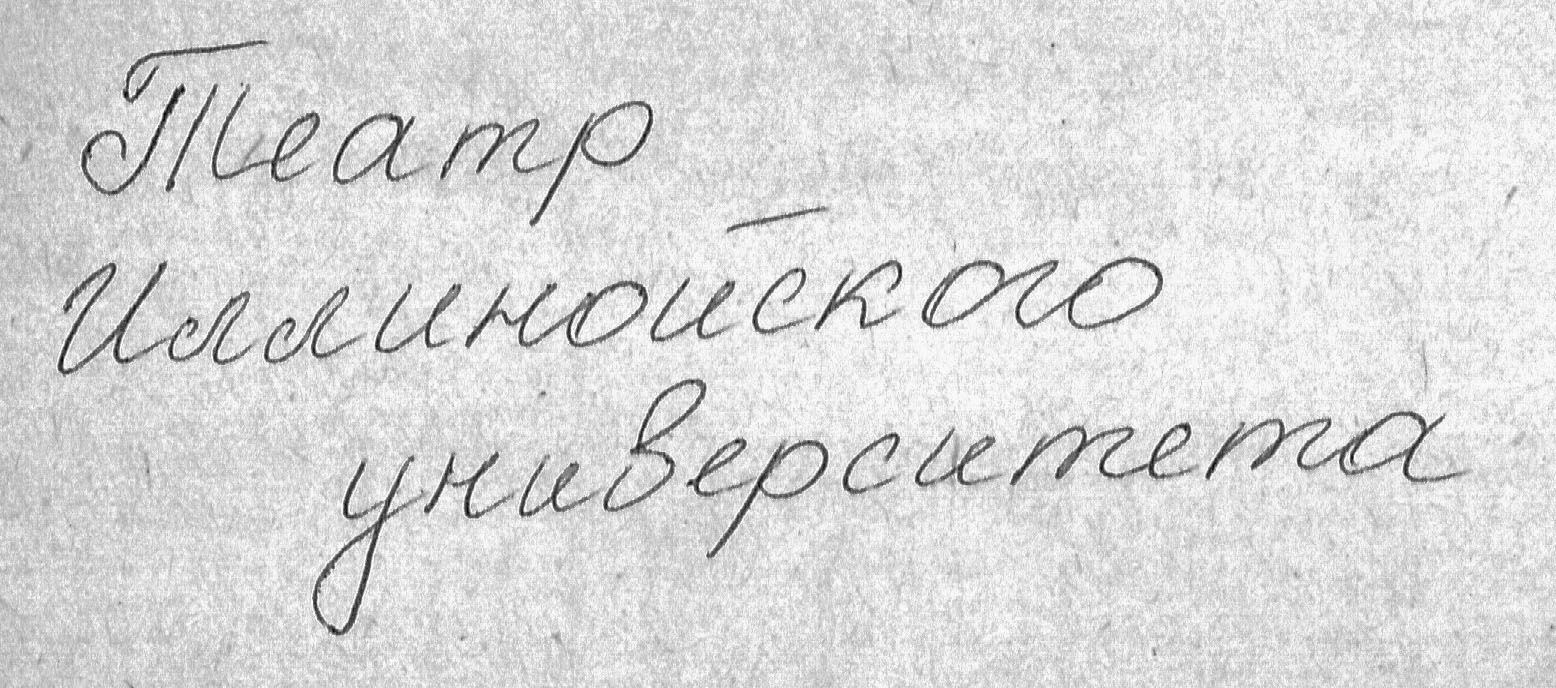 Театр
Иллинойского
университета